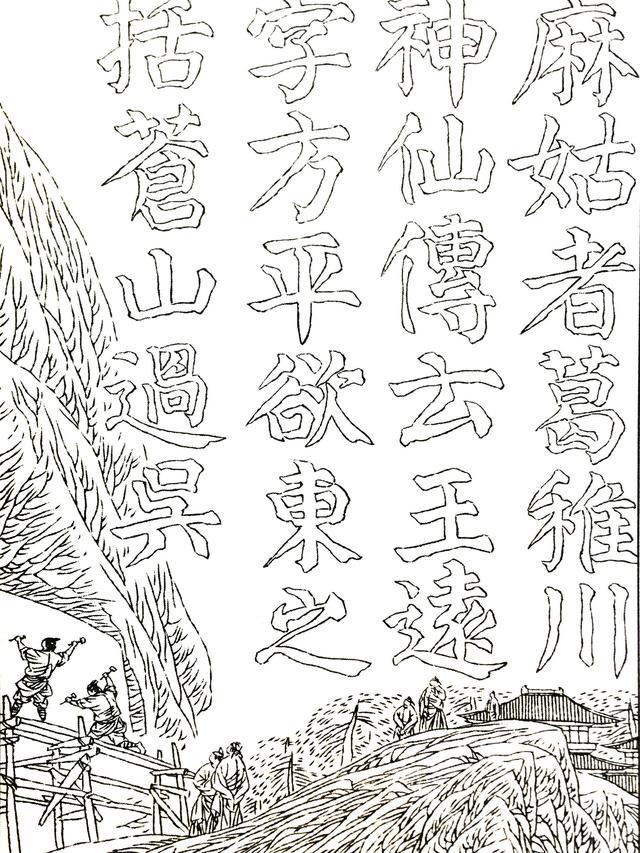 麻姑者葛稚川
神仙傳云王遠
字方平欲東之
括蒼山過吳